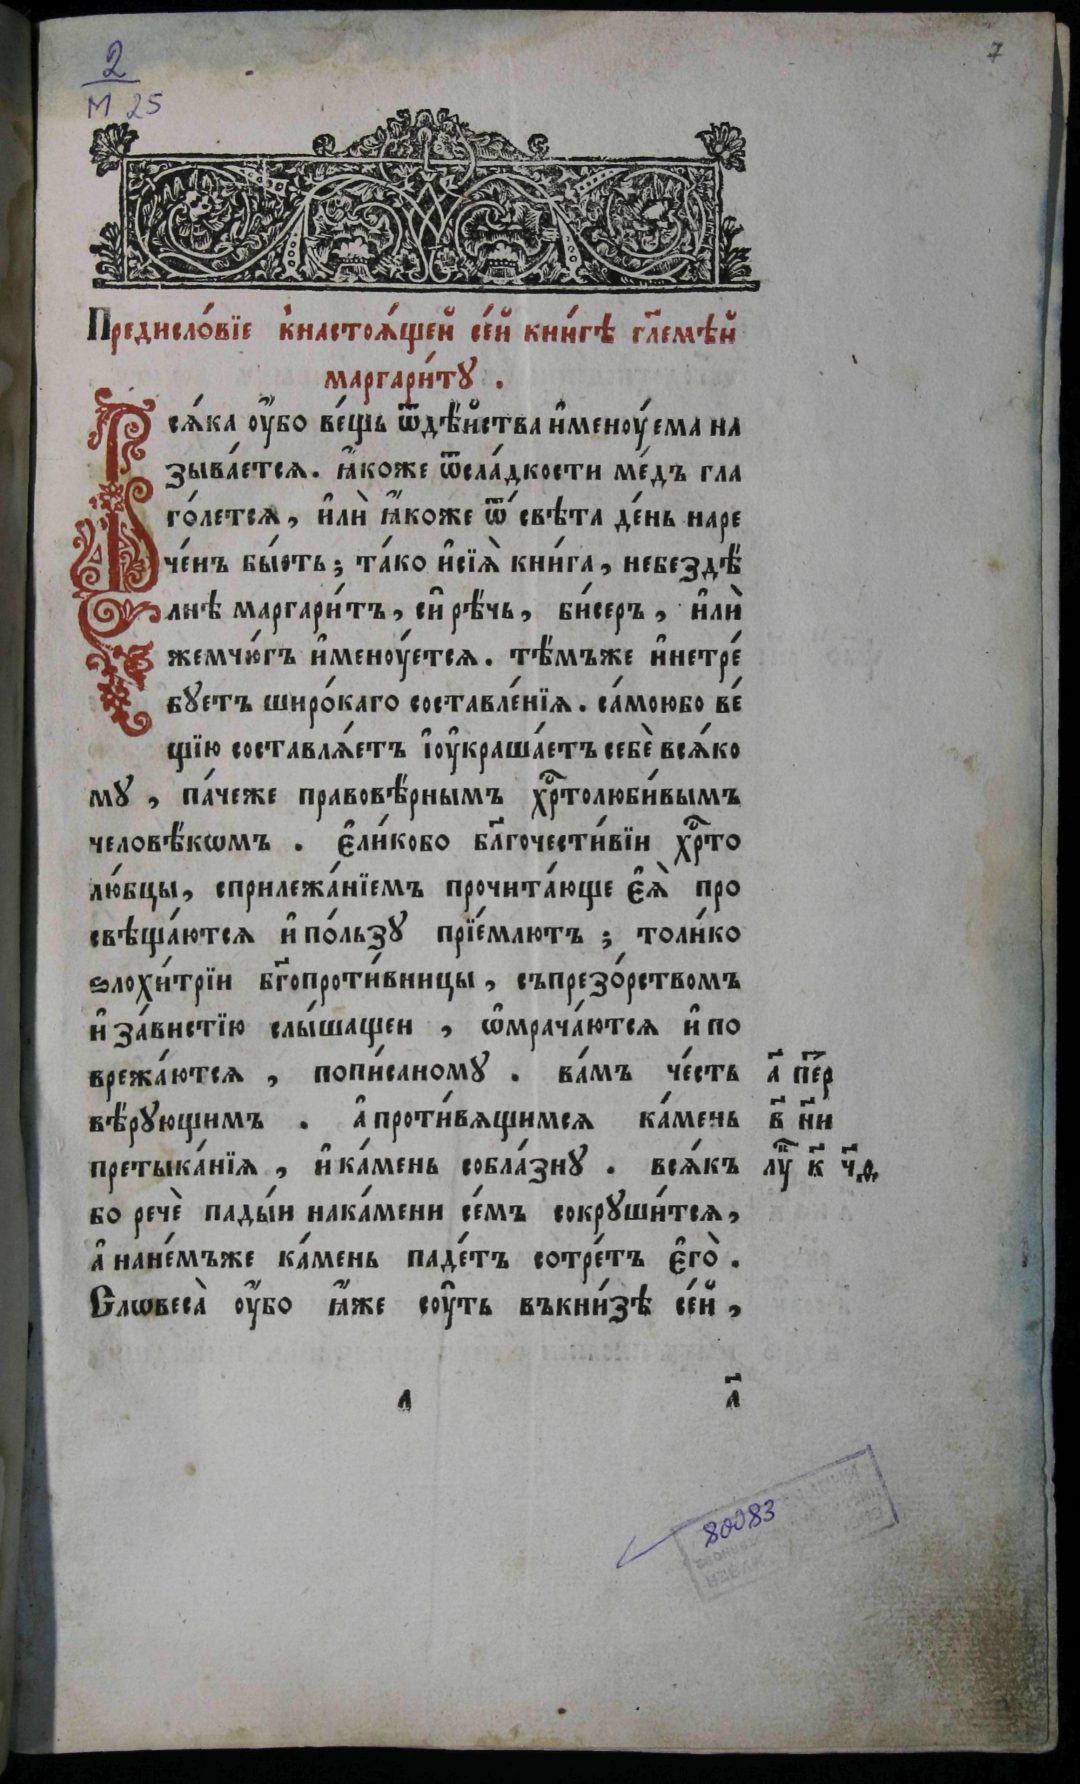 2
М 25
7
Предисло́вїе к̾настоѧ́щей се́й кни́гѣ гл҃емѣ́й
маргари́тꙋ .
Всѧ́ка ᲂу҆̀бо ве́щь ѿдѣ́йства и҆менꙋ́ема на
зыва́етсѧ . ꙗ҆́коже ѿсла́дкости ме́дъ гла
го́летсѧ , и҆лѝ ꙗ҆́коже ѿ свѣ́та де́нь наре
че́нъ бы́сть ; та́ко и҆сїѧ̀ кни́га , небездѣ́
лнѣ маргари́тъ , си҆ рѣ́чь , би́серъ , и҆лѝ
жемчю́гъ и҆менꙋ́етсѧ . тѣ́мъже и҆нетре́
бꙋетъ широ́каго составле́нїѧ . са́моюбо ве́
щїю составлѧ́етъ і҆ᲂу҆краша́етъ себѐ всѧ́ко
мꙋ , па́чеже правовѣ́рнымъ хрⷭ҇толюби́вымъ
человѣ́кѡмъ . є҆ли́кобо бл҃гочести́вїи хрⷭ҇то
лю́бцы , сприлежа́нїемъ прочита́юще є҆ѧ̀ про
свѣща́ютсѧ и҆ по́льзꙋ прїе́млютъ ; толи́ко
ѕлохи́трїи бг҃опроти́вницы , съпрезо́рствомъ
и҆ за́вистїю слы́шащеи , ѡ҆мрача́ютсѧ и҆ по
врежа́ютсѧ , пописаному . ва́мъ че́сть
вѣ́рꙋющимъ . а҆ проти́вѧщимсѧ ка́мень
претыка́нїѧ , и҆ ка́мень собла́знꙋ . всѧ́къ
бо речѐ пады́и нака́мени се́мъ сокрꙋши́тсѧ ,
а҆ нане́мъже ка́мень паде́тъ сотре́тъ є҆го̀ .
Словеса̀ ᲂу҆̀бо ꙗ҆́же сꙋ́ть въкни́зѣ се́й ,
а҃ пе́р
в҃ н҃и
лꙋ к҃ ч҃
а а҃
80083